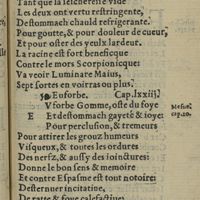 Tant que la felcherete vide
Les deux ont vertu restringente,
Destommach chauld refrigerante.
Pour goutte, & pour douleur de cueur,
Et pour oster des yeulx lardeur.
La racine est fort beneficque
Contre le mors Scorpionicque:
Va veoir Luminare Maius,
Sept sortes en voirras ou plus.
Euforbe. Cap. lxxiij.
Vforbe Gomme, oste du foye
E Et destommach gayeté & ioye:
Pour perclusion, & tremeurs
Pour attirer les grouz humeurs
Visqueux, & toutes les ordures
Des nerfz, & aussy des ioinctures:
Donne le bon sens & memoire
Et contre Espasme est tout notoire:
Desternuer incitatiue,
De ratte & foye calefactiue;
Mesue.
cap. 20.